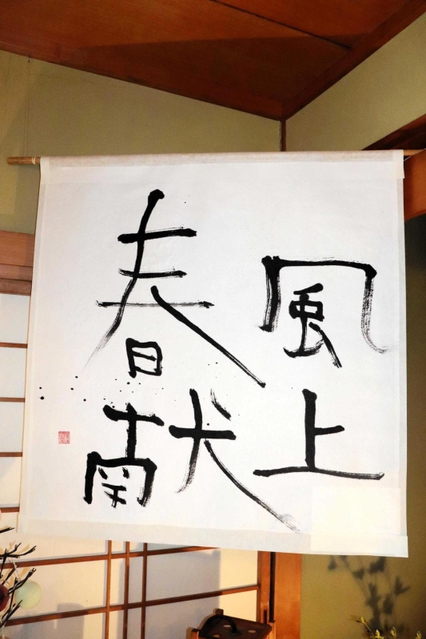 風上
春献